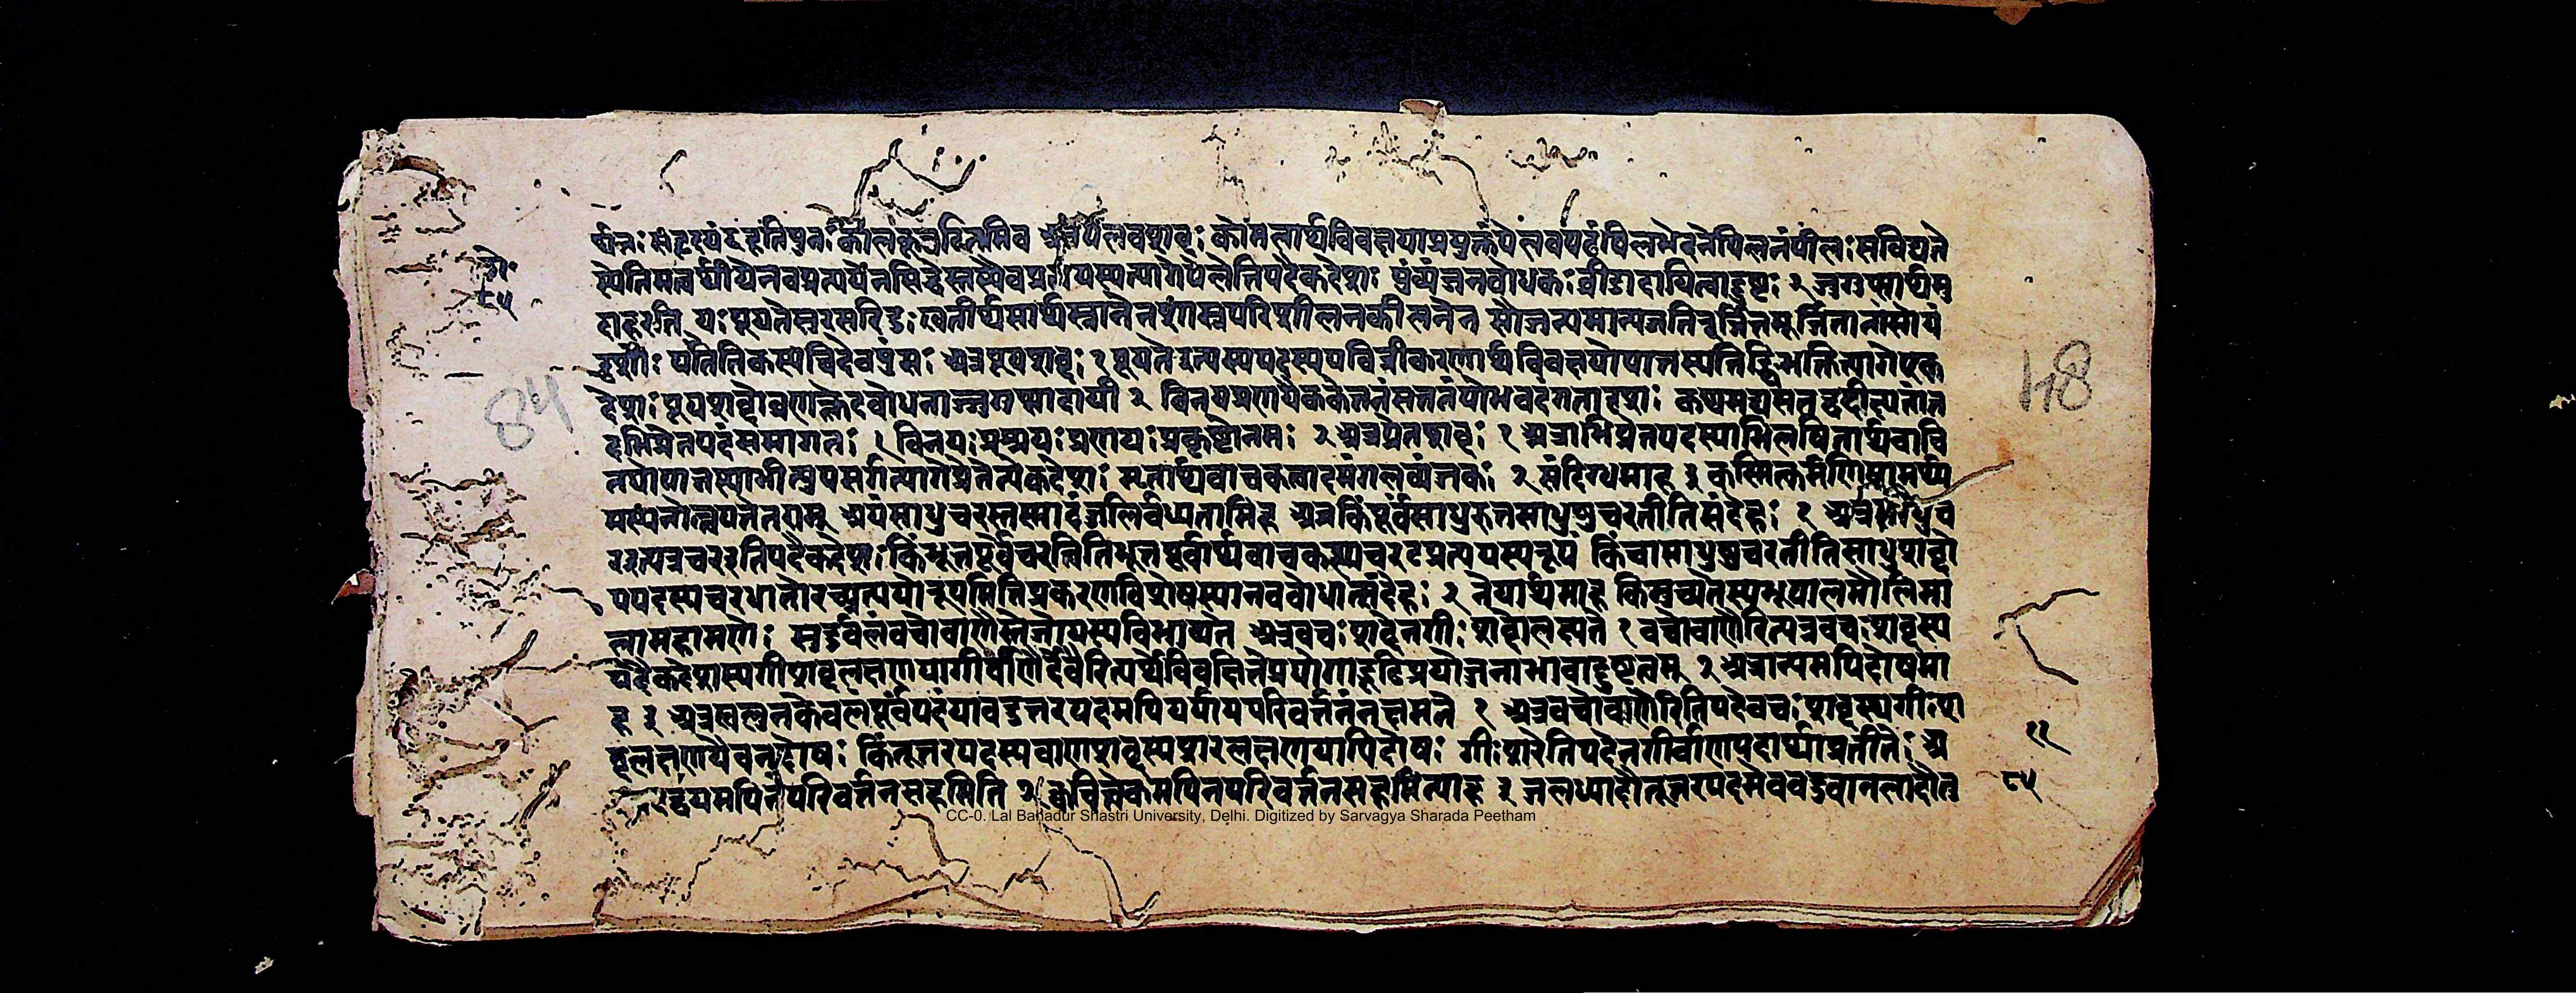 र्थिनः सहृदयं दहति पुनः कालकूटघटितमिव अत्र पेलवशब्दः कोमलार्थविवक्षया प्रयुक्तं पेलवपदं पिलभेदने पिलनं पीलः सविद्यते
स्येतिमत्वर्थीयेनवप्रत्ययेनसिद्धेस्तस्यैवप्रत्ययस्यत्यागेपेलेतिपदैकदेशः पुंव्यंजनबोधकः व्रीडादायित्वाद्दुष्टः २ जुगुप्सार्थमु
दाहरति यः पूयतेसुरसरिन्मुखतीर्थसार्थस्नानेनशास्त्रपरिशीलनकीलनेन सौजन्यमान्यजनिरूर्जितमूर्जितानांसोयं
दृशोः पतितिकस्यचिदेवपुंसः अत्रपूयशब्दः १ पूयतेइत्यस्यपदस्यपवित्रीकरणार्थविवक्षयोपात्तस्यतिङ्विभक्तित्यागेएक
देशः पूयशब्दोव्रणक्लेदबोधनाज्जुगुप्सादायी २ विनयप्रणयैककेतनंसततंयोभवदंगतादृशः कथमद्यसतद्वदीक्ष्यतांत
दभिप्रेतपदंसमागतः १ विनयः प्रश्रयः प्रणयः प्रकृष्टोनयः २ अत्रप्रेतशब्दः १ अत्राभिप्रेतपदस्याभिलषितार्थवाचि
तयोपात्तस्याभीत्युपसर्गत्यागेप्रेतेत्येकदेशः मृतार्थवाचकत्वादमंगलव्यंजकः २ संदिग्धमाह ३ कस्मिन्कर्मणिसामर्थ्य
मस्यनोत्तपतेतराम् अयंसाधुचरस्तस्मादंजलिर्बध्यतामिह अत्रकिंपूर्वंसाधुरुतसाधुषुचरतीतिसंदेहः १ अत्रसाधुच
रइत्यत्रचरइतिपदैकदेशः किंभूतपूर्वेचरडितिभूतपूर्वार्थवाचकस्यचरट्प्रत्ययस्यरूपं किंवासाधुषुचरतीतिसाधुशब्दो
पपदस्यचरधातोरच्प्रत्ययोरूपमितिप्रकरणविशेषस्यानवबोधात्संदेहः २ नेयार्थमाह किमुच्यतेस्यभूपालमौलिमा
लामहामणेः सुदुर्लभंवचोबाणैस्तेजोयस्यविभाव्यते अत्रवचः शब्देनगीः शब्दोलक्ष्यते १ वचोबाणैरित्यत्रवचः शब्दस्य
पदैकदेशस्यगीशब्दलक्षणयागीर्वाणैर्देवैरित्यर्थेविवक्षितेप्रयोगाद्रूढिप्रयोजनाभावाद्दुष्टत्वम् २ अत्रान्यमपिदोषमा
ह ३ अत्रखलुनकेवलंपूर्वपदंयावदुत्तरपदमपिपर्यायपरिवर्त्तनंनक्षमते १ अत्रवचोबाणैरितिपदेवचः शब्दस्यगीःश
ब्दलक्षणयैवनदोषः किंतूत्तरपदस्यबाणशब्दस्यशरलक्षणयापिदोषः गीःशरेतिपदेनगीर्वाणपदार्थाप्रतीतेः अ
द्वयमपिनपरिवर्त्तनसहमिति २ क्वचित्त्वेकमपिनपरिवर्त्तनसहमित्याह ३ जलध्यादौतूत्तरपदमेववडवानलादौतु
८५
84
84
११
८५
CC-0. Lal Bahadur Shastri University, Delhi. Digitized by Sarvagya Sharada Peetham